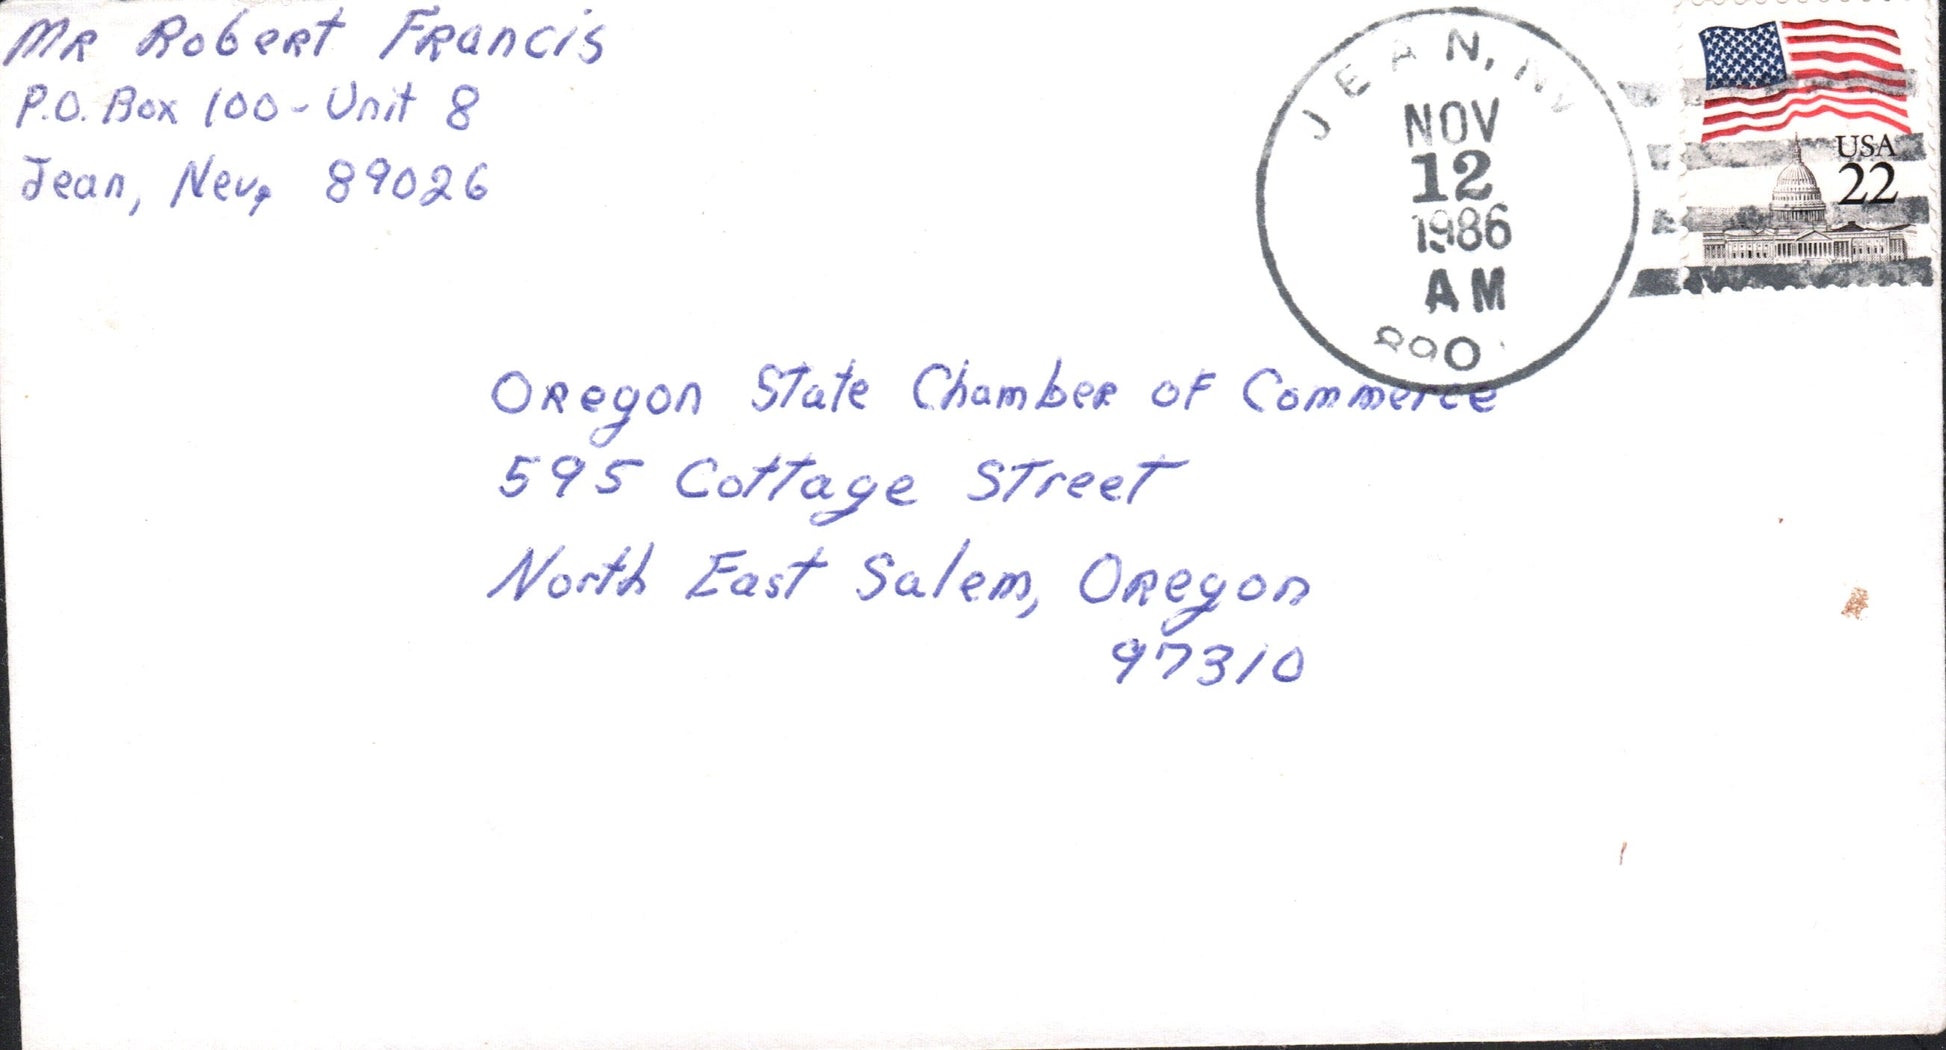 MR Robert Francis
P.O. Box 100 - Unit 8
Jean, Nev, 89026
JEAN, NV
NOV
12
1986
AM
890
USA
22
Oregon State Chamber of Commerce
595 Cottage Street
North East Salem, Oregon
97310